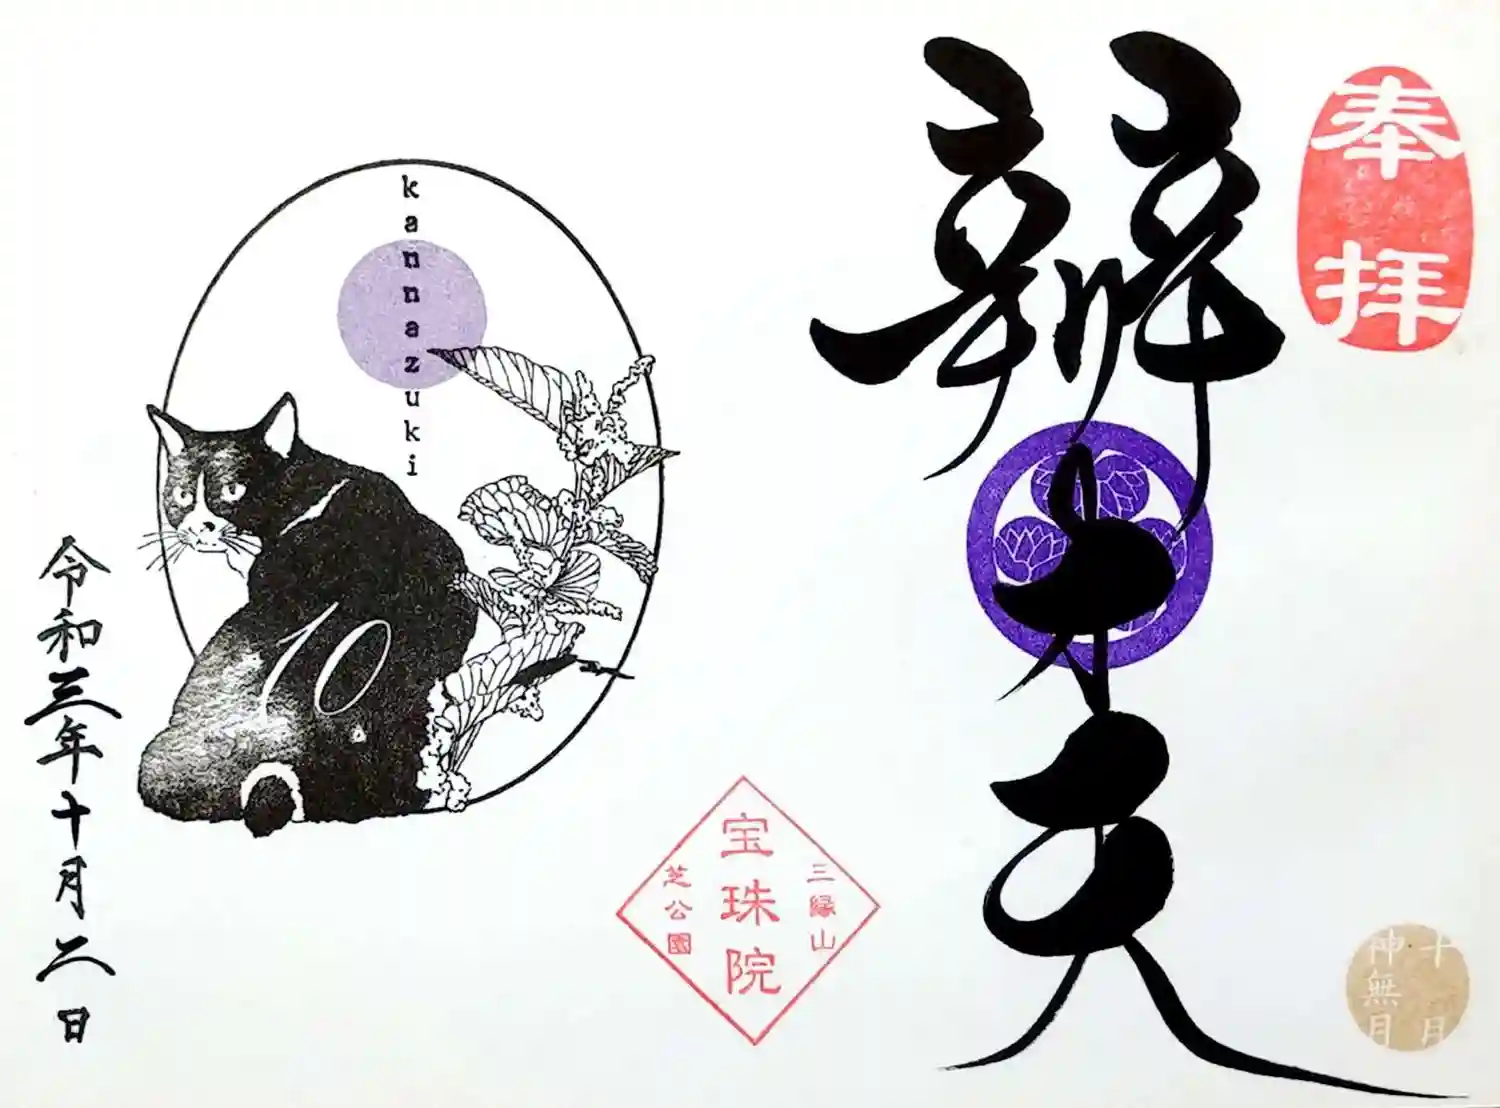 奉拝
辨才天
十月
神無月
三縁山
宝珠院
芝公園
kannazuki
10
令和三年十月二日